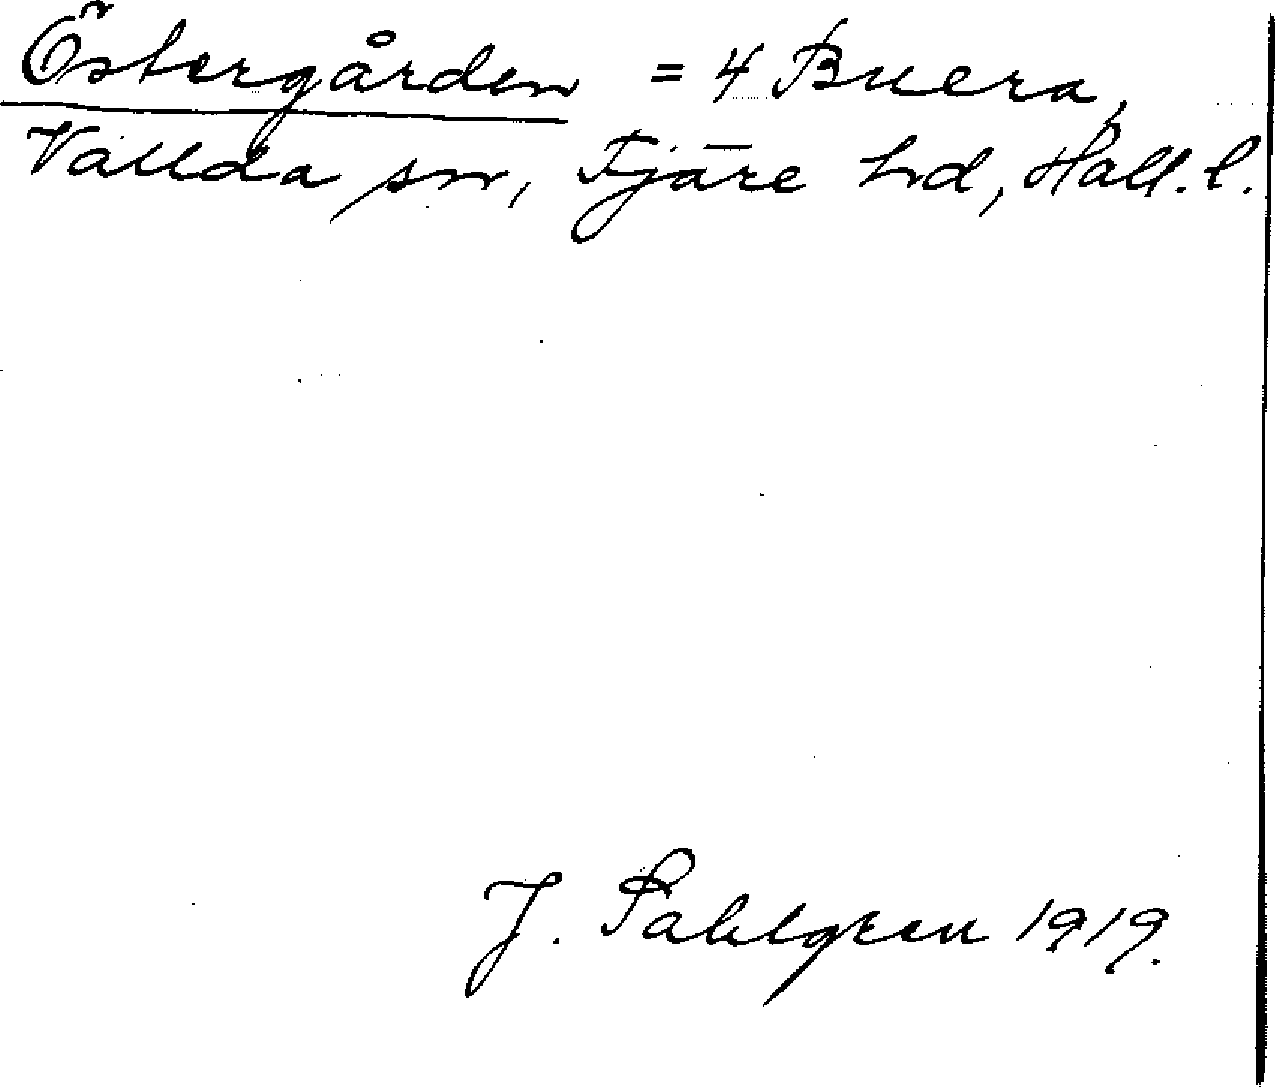 Östergården = 4 Buera,
Vallda sn, Fjäre hd, Hall. l.
J. Sahlgren 1919.